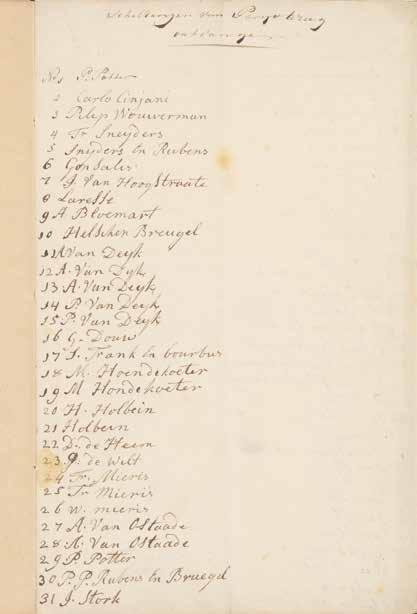 Schilderijen van Parijs terug
ontvangen
No 1 P. Potter
2 Carlo Cinjani
3 Philip Wouwerman
4 Fr Sneyders
5 Snyders En Rubens
6 Gonsales
7 J. Van HoogStraate
8 Laresse
9 A Bloemart
10 Helschen Breugel
11 A Van Deyk
12 A. Van Dyk
13 A. Van Deyk
14 P. Van Deyk
15 P. Van Deyk
16 G. Douw
17 F. Frank En bourbus
18 M. Hoendekoeter
19 M Hondekoeter
20 H. Holbein
21 Holbein
22 D. de Heem
23 J. de Wilt
24 Fr. Mieris
25 Fr Mieris
26 W. mieris
27 A. Van OStaade
28 A. Van OStaade
29 P. Potter
30 P. P. Rubens En Bruegel
31 J. Stork